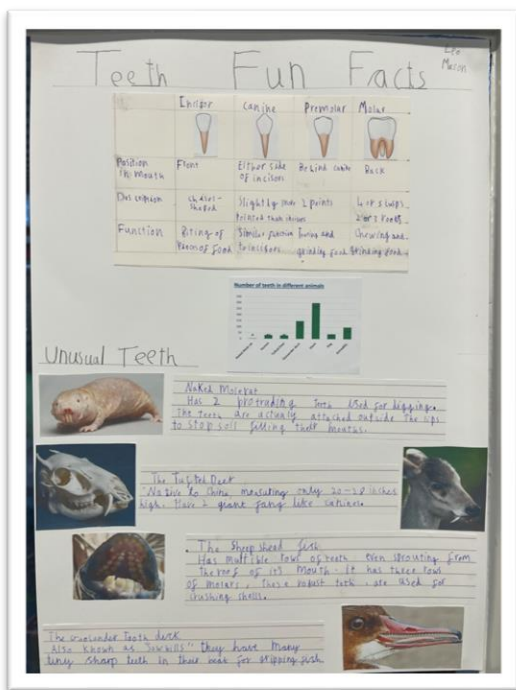 Leo
Mason
Teeth Fun Facts
Incisor Canine Premolar Molar
Position in mouth Front Either side of incisors Behind canine Back
Description chisel-shaped Slightly more pointed than incisors 2 points 4 or 5 cusps 2 or 3 roots
Function Biting of pieces of food Similar function to incisors and grinding food Chewing and grinding food
Number of teeth in different animals
Unusual Teeth
Naked Molerat
Has 2 protruding teeth used for digging.
The teeth are actually attached outside the lips
to stop soil filling their mouths.
The Tufted Deer
Native to China, measuring only 20-28 inches
high. Have 2 giant fang like canines.
The Sheepshead fish
Has multible rows of teeth even sprouting from
the roof of its mouth. It has three rows
of molars, these robust teeth are used for
crushing shells.
The tooth duck
Also known as "Sawbills" they have many
tiny sharp teeth in their beak for gripping fish